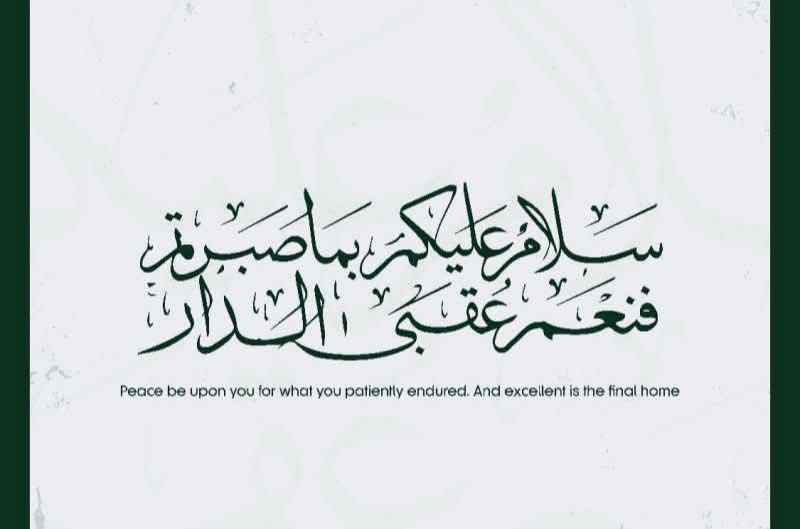 سَلَامٌ عَلَيْكُمْ بِمَا صَبَرْتُمْ
فَنِعْمَ عُقْبَى الدَّارِ
Peace be upon you for what you patiently endured. And excellent is the final home